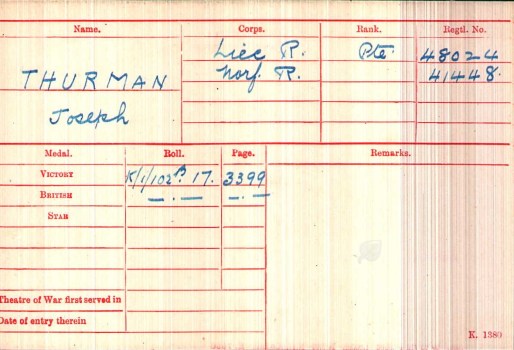 Name. Corps. Rank. Regtl. No.
Liec R. Pte. 48024
THURMAN Norf. R. 41448.
Joseph
Medal. Roll. Page. Remarks.
VICTORY K/1/102 B. 17. 3399
BRITISH —.— —.—
STAR
Theatre of War first served in
Date of entry therein
K. 1380